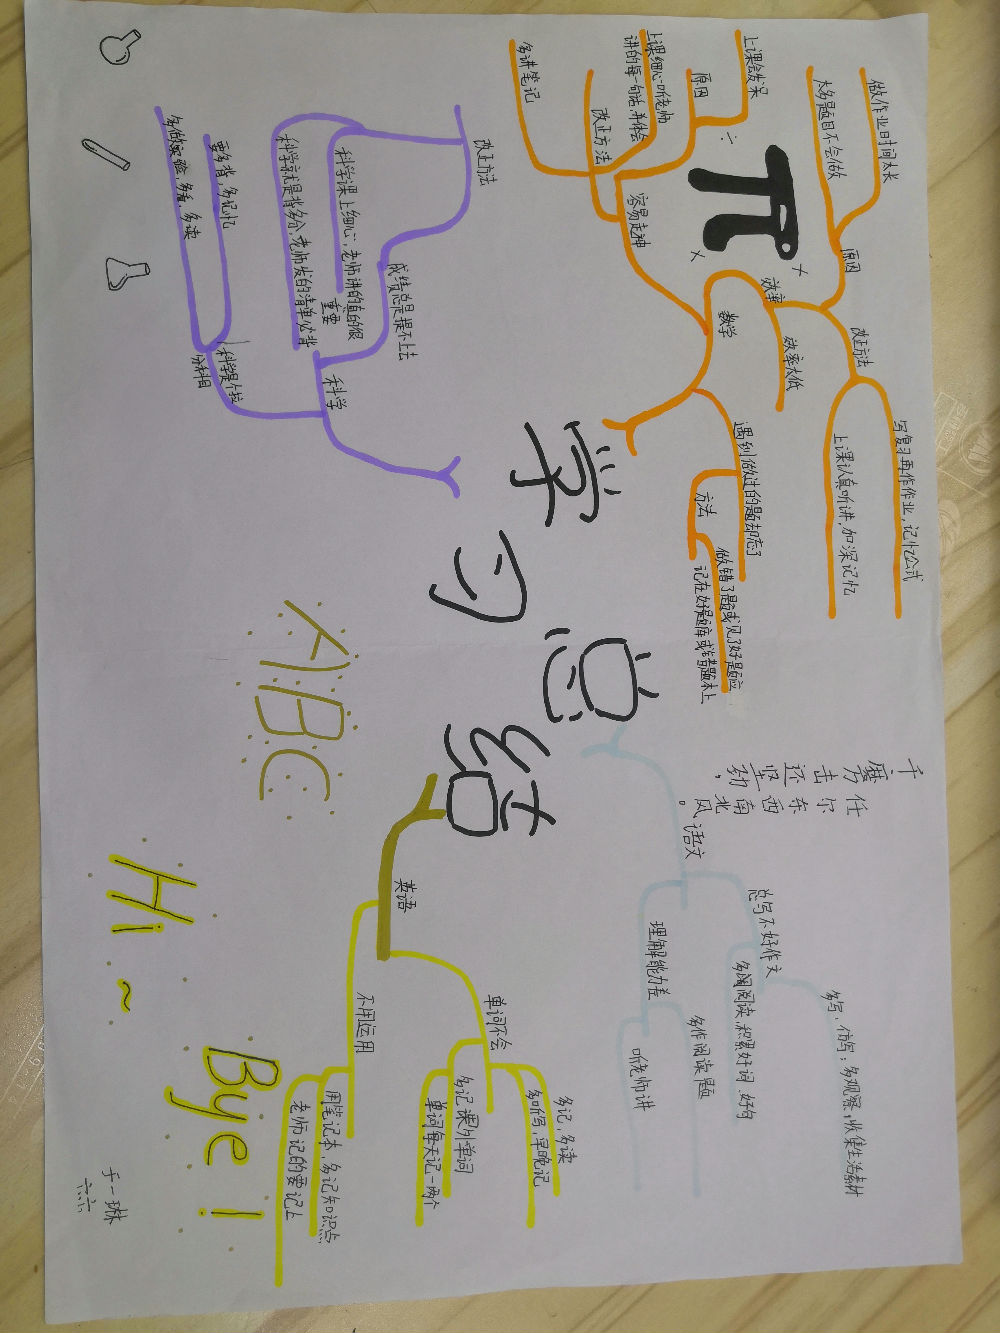 学习总结
数学
效率
效率太低
原因
做作业时间太长
大多题目不会做
改正方法
写复习再作作业,记忆公式
上课认真听讲,加深记忆
容易走神
原因
上课会发呆
改正方法
上课细心听老师
讲的每一句话,并体会
多讲笔记
遇到做过的题却忘了
方法
做错了题或见了好题应
记在好题库或错题本上
÷
π
+
×
科学
成绩总是提不上去
改正方法
科学课上细心,老师讲的真的很
重要
科学就是背多分,老师发的清单必背
科学是个拉
分科目
要多背,多记忆
多做实验,多看,多读
语文
总写不好作文
多写,仿写;多观察,收集生活素材
多阅阅读,积累好词.好句
理解能力差
多作阅读题
听老师讲
千磨万击还坚劲,
任尔东西南北风。
英语
单词不会
多记,多读
多听写,早晚记
多记课外单词
单词每天记一两个
不用运用
用笔记本,多记知识点
老师记的要记上
ABC
Hi~
Bye!
于一琳